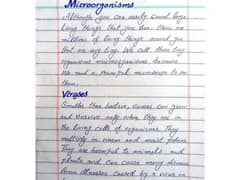 Microorganisms
Although you can easily count large
living things that you see, there are
millions of living things around you
that are very tiny. We call these tiny
organisms microorganisms because
we need a powerful microscope to see
them.
Viruses
Smaller than bacteria, viruses can grow
and survive only when they are in
the living cells of organisms. They
multiply in warm and moist places.
They are harmful to animals and
plants and can cause many diseases.
Some illnesses caused by a virus in